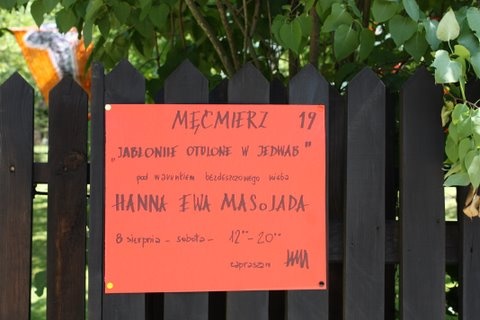 MĘĆMIERZ 19
„JABŁONIE OTULONE W JEDWAB"
pod warunkiem bezdeszczowego nieba
HANNA EWA MASOJADA
8 sierpnia - sobota - 12⁰⁰-20⁰⁰
zapraszam